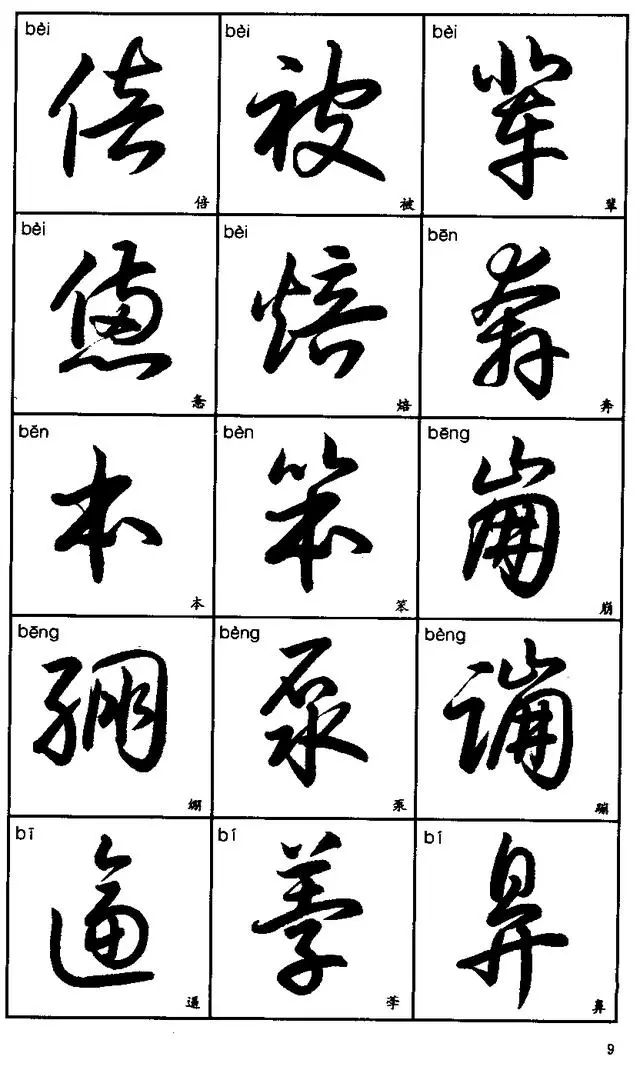 bèi bèi bèi
倍 被 辈
倍 被 辈
bèi bèi bēn
憊 焙 奔
惫 焙 奔
běn bèn bēng
本 笨 崩
本 笨 崩
bēng bèng bèng
绷 泵 蹦
绷 泵 蹦
bī bí bí
逼 荸 鼻
逼 荸 鼻
9